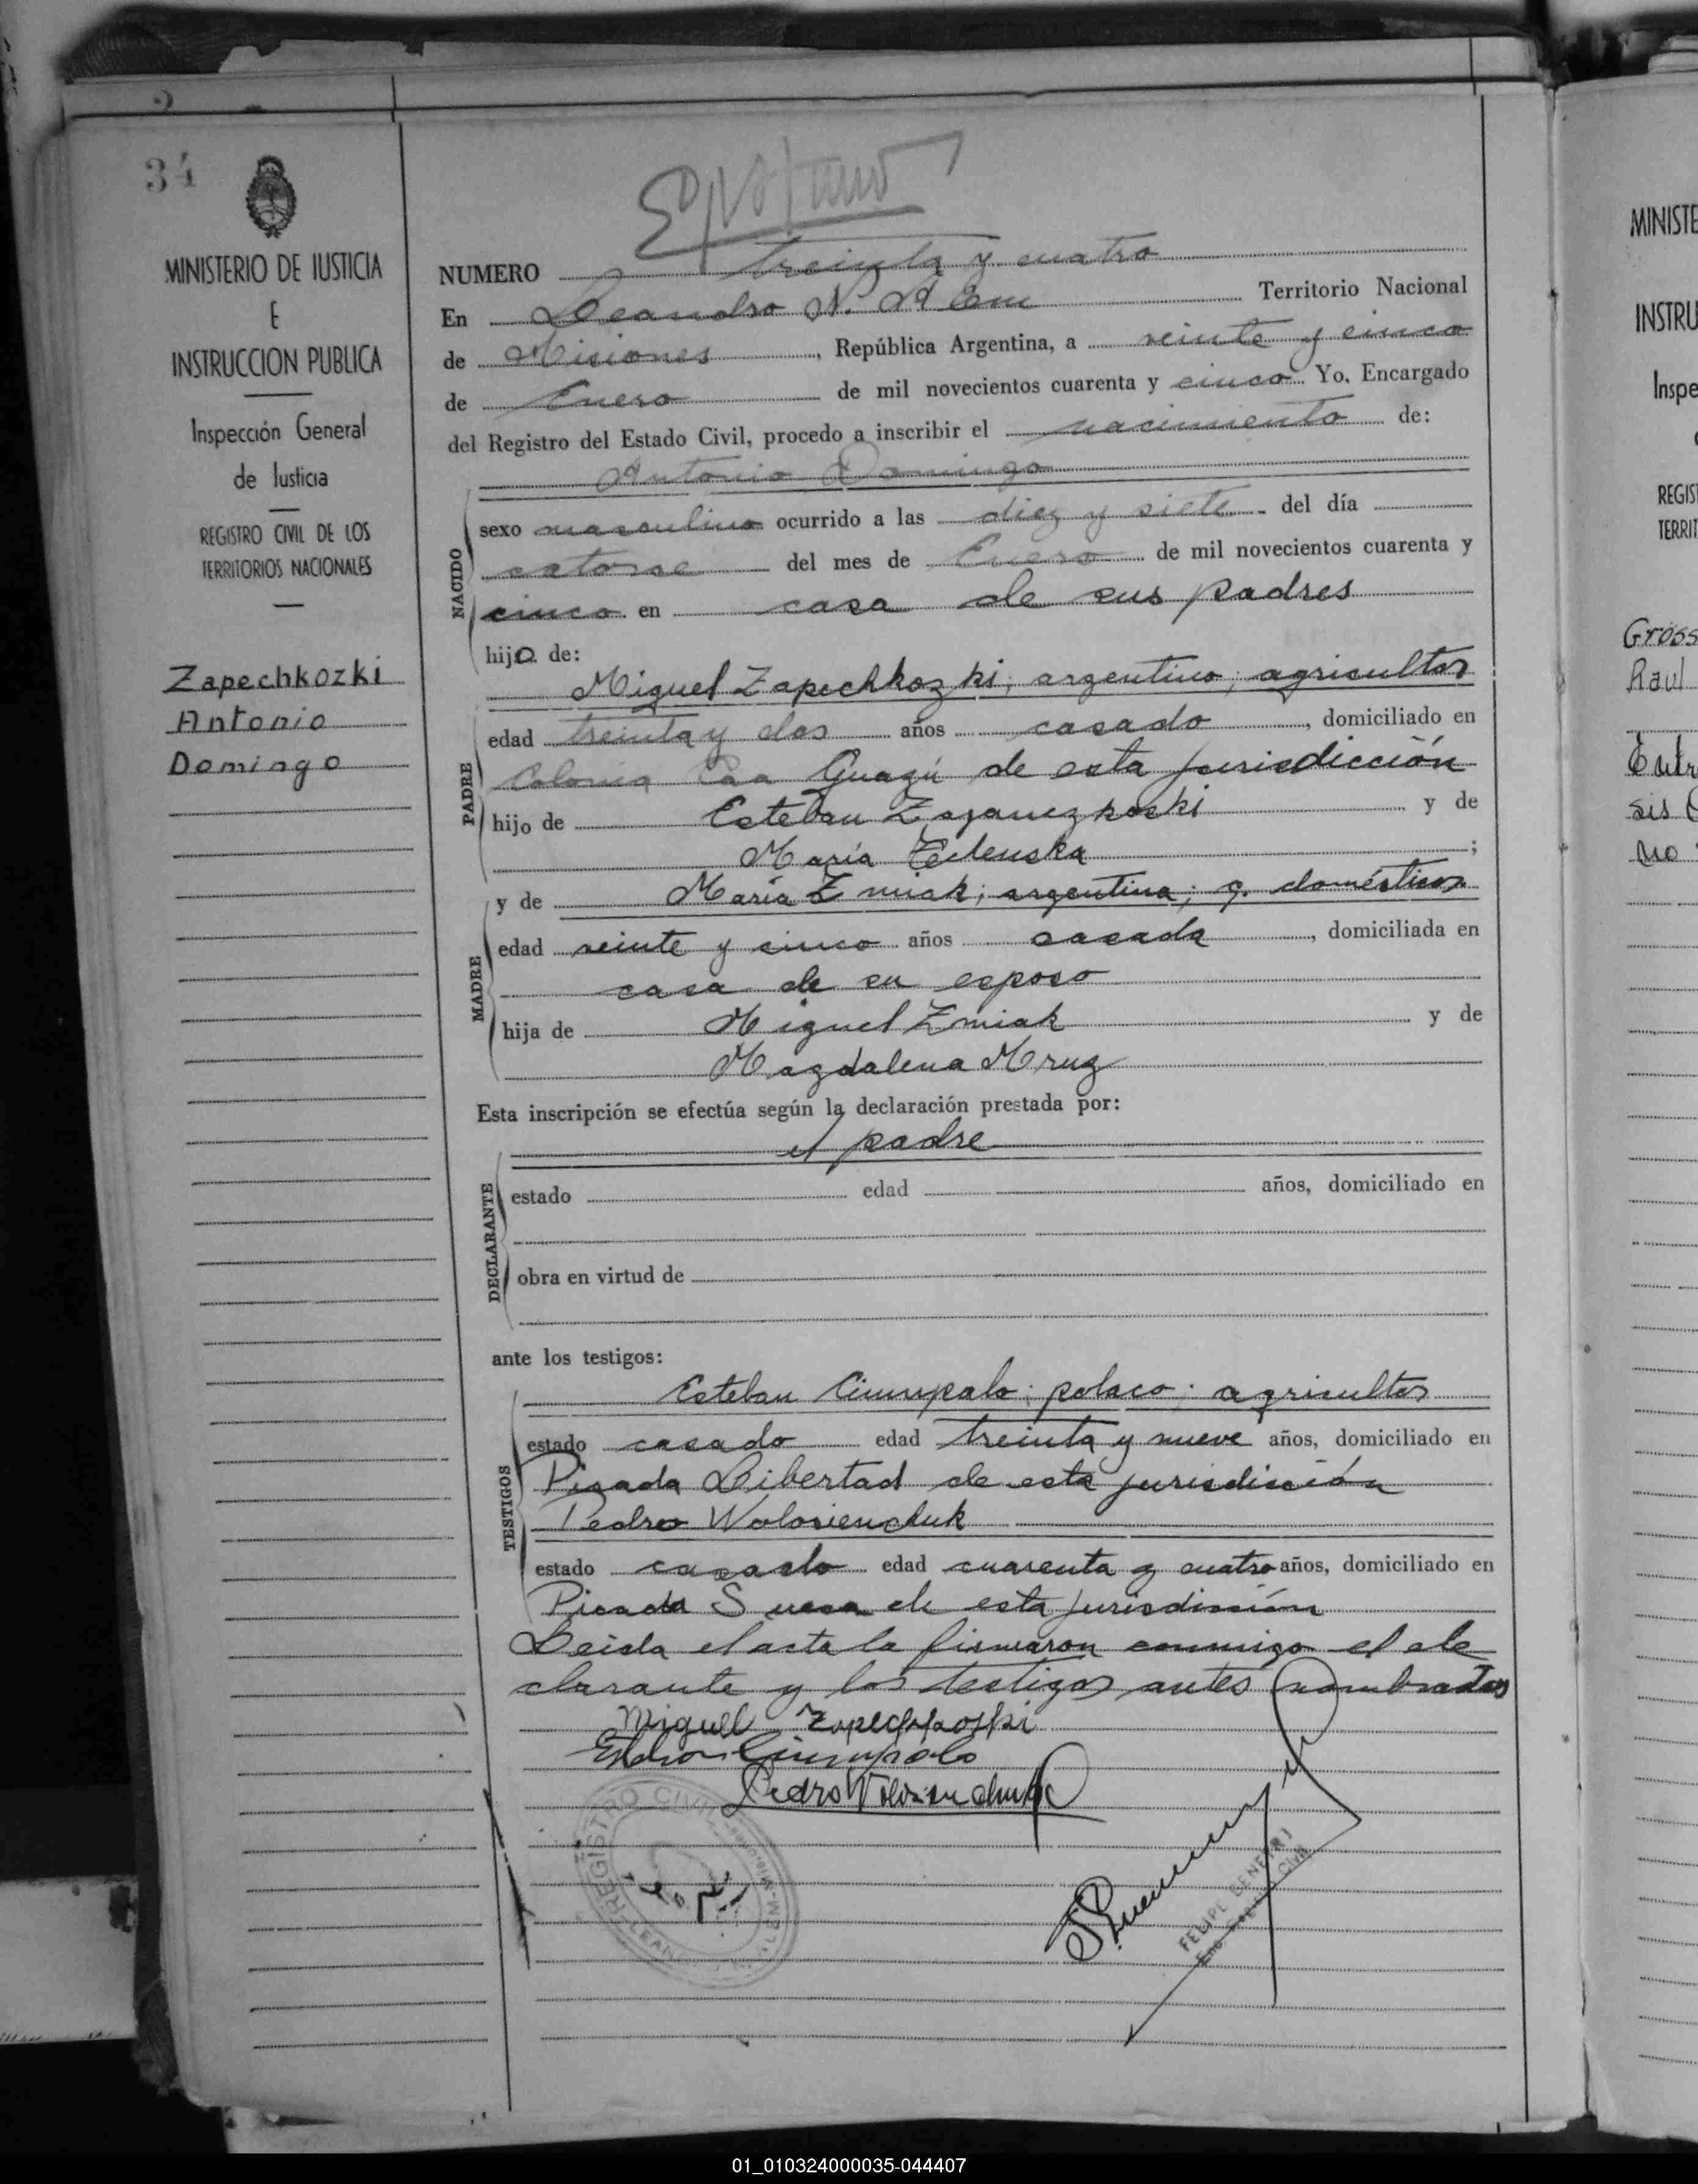 34
MINISTERIO DE JUSTICIA
E
INSTRUCCION PUBLICA
Inspección General
de Justicia
REGISTRO CIVIL DE LOS
TERRITORIOS NACIONALES
Zapechkozki
Antonio
Domingo
NUMERO treinta y cuatro
En Leandro N. Alem Territorio Nacional
de Misiones, República Argentina, a veinte y cinco
de Enero de mil novecientos cuarenta y cinco Yo, Encargado
del Registro del Estado Civil, procedo a inscribir el nacimiento de:
Antonio Domingo
NACIDO
sexo masculino ocurrido a las diez y siete del día
catorce del mes de Enero de mil novecientos cuarenta y
cinco en casa de sus padres
hijo de:
PADRE
Miguel Zapechkozki; argentino; agricultor
edad treinta y dos años casado, domiciliado en
Colonia Caa Guazú de esta jurisdicción
hijo de Esteban Zajanczkoski y de
María ;
MADRE
y de María Zmiak; argentina; q. domésticos
edad veinte y cinco años casada, domiciliada en
casa de su esposo
hija de Miguel Zmiak y de
Magdalena Mruz
Esta inscripción se efectúa según la declaración prestada por:
DECLARANTE
el padre
estado edad años, domiciliado en
obra en virtud de
ante los testigos:
TESTIGOS
Esteban ; polaco; agricultor
estado casado edad treinta y nueve años, domiciliado en
Picada Libertad de esta jurisdicción
Pedro Wolosienchuk
estado casado edad cuarenta y cuatro años, domiciliado en
Picada Sueca de esta jurisdicción
Leida el acta la firmaron conmigo el de
clarante y los testigos antes nombrados
Miguel Zapechkoski
Pedro
REGISTRO CIVIL
FELIPE
Enc. Registro Civil
MINISTE
INSTRU
Inspe
REGIS
TERRIT
Gross
Raul
sis
no
01_010324000035-044407